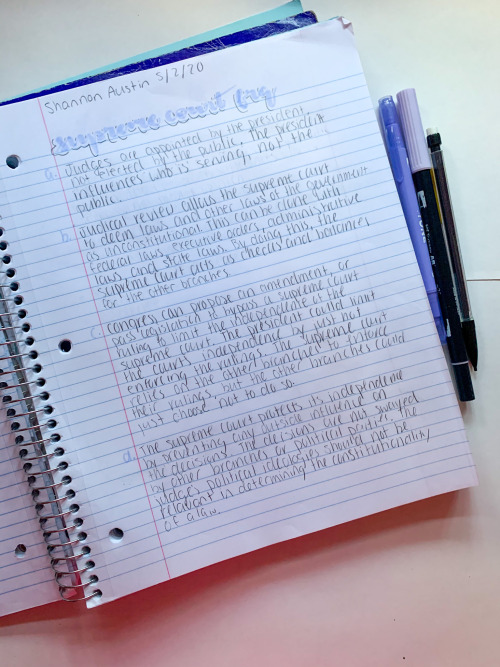 Shannon Austin 5/2/20
supreme court frq
a. Judges are appointed by the president,
not elected by the public, the president
influences who is serving, not the
public.
b. Judical review allows the supreme court
to deem laws and other laws of the government
as unconstitutional. This can be done with
federal laws, executive orders, administrative
laws, and state laws. By doing this, the
supreme court acts as checks and balances
for the other branches.
c. Congress can propose an amendment, or
pass legislation to bypass a supreme court
ruling to limit the independence of the
supreme court. The president could limit
the courts independence by just not
enforcing the rulings. The supreme court
relies on the other branches to enforce
their rulings, but the other branches could
just choose not to do so.
d. The supreme court protects its independence
by preventing any outside influence on
the decisions. The decisions are not swayed
by other branches or political parties. The
judges political ideologies should not be
relevant in determining the constitutionality
of a law.